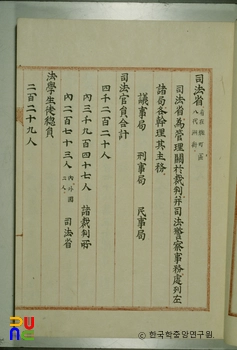 司法省 在麴町區八代洲町
司法省爲管理關於裁判幷司法警察事務處列左
諸局各幹理其主務
議事局 刑事局 民事局
司法官員合計
四千二百二十人
內三千九百四十七人 諸裁判所
內二百七十三人 內外國二人 司法省
法學生徒總員
二百二十九人
RUNS
한국학중앙연구원